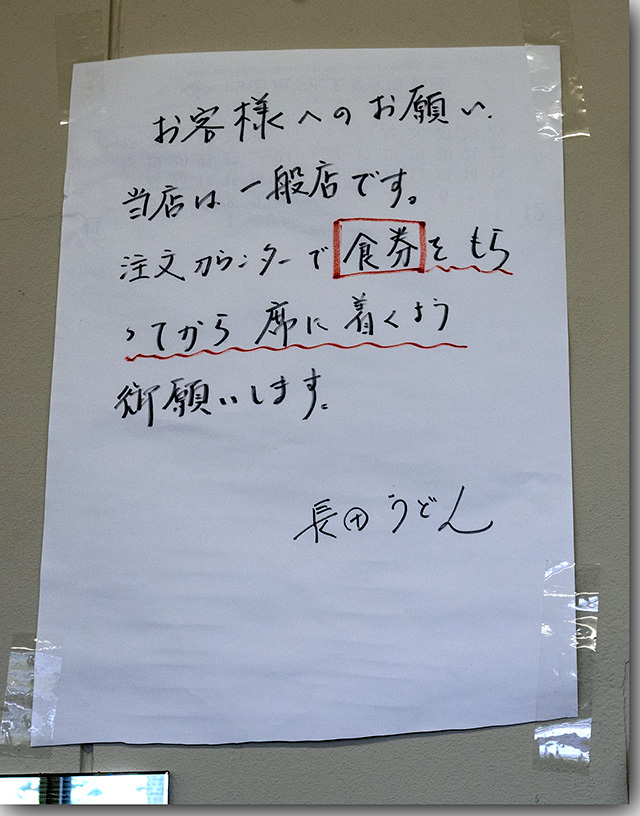 お客様へのお願い.
当店は一般店です。
注文カウンターで食券をもら
ってから席に着くよう
御願いします。
長田うどん